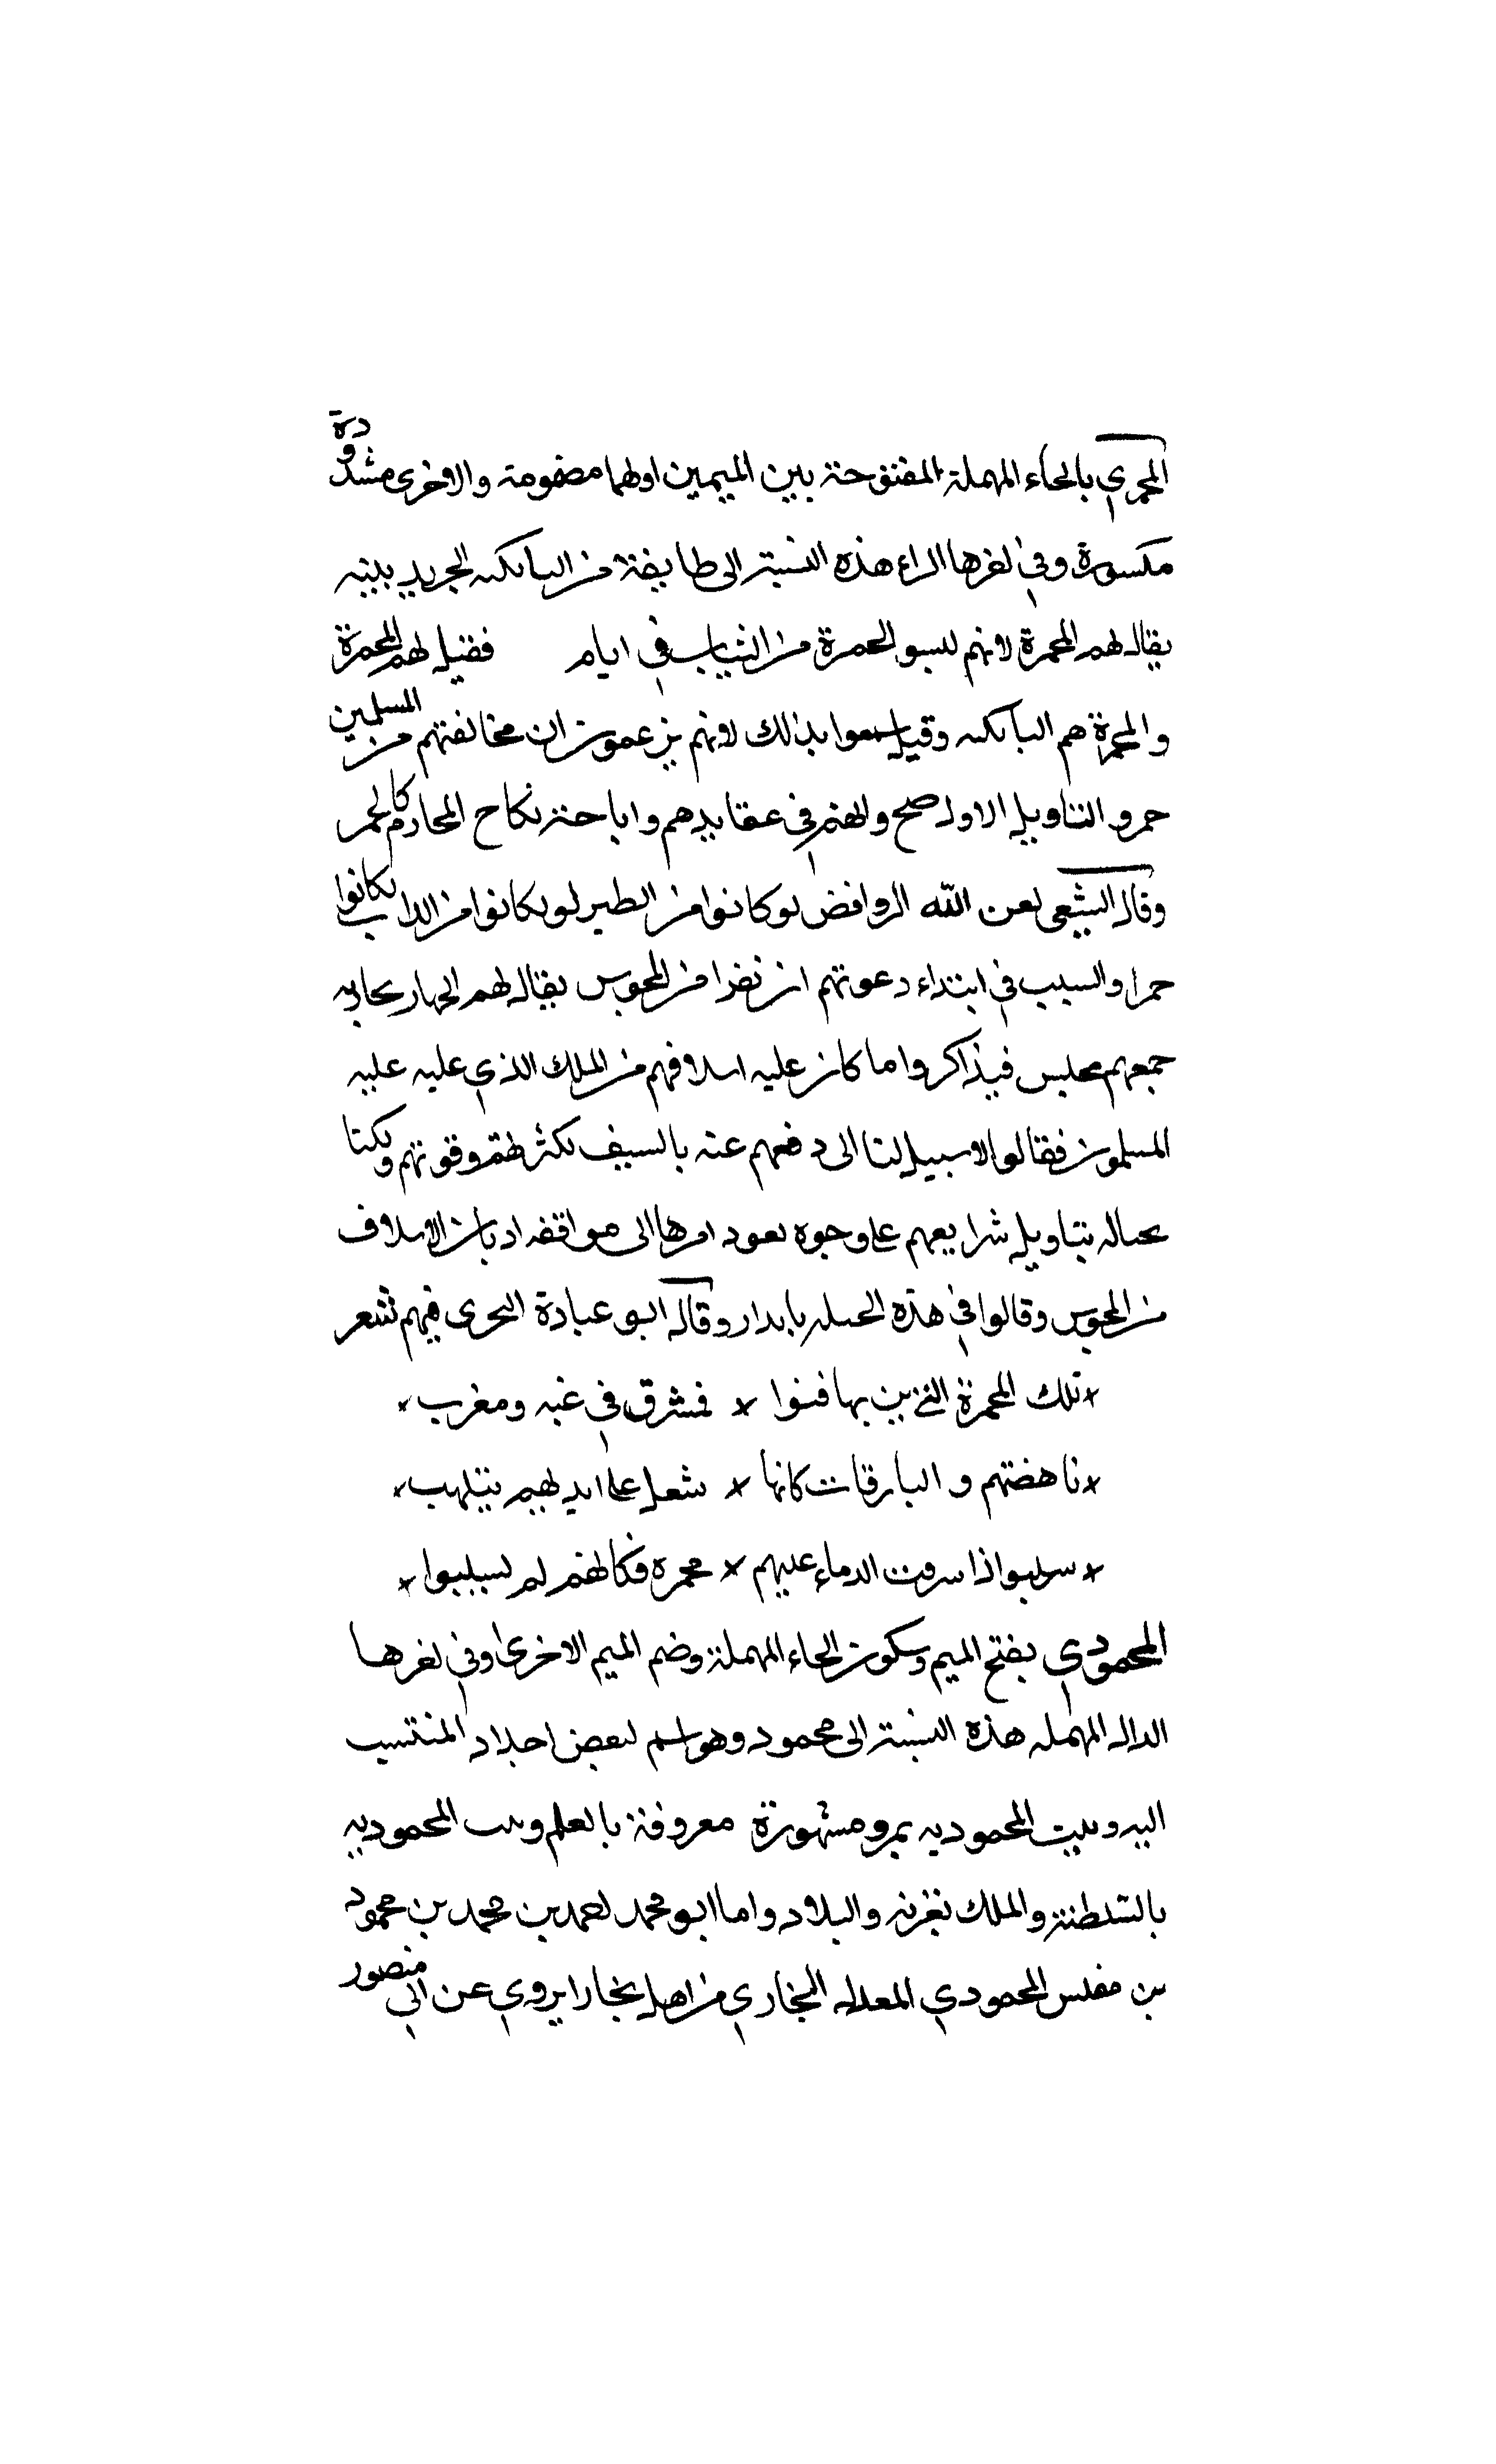 المحمري بالحاء المهملة المفتوحة بين الميمين اولهما مضمومة والاخرى مشددة
مكسورة وفي اخرها الراء هذه النسبة الى طايفة من البابكيه الخرمدينيه
يقال لهم المحمرة لانهم لبسوا الحمرة من الثياب في ايام فقيل لهم المحمرة
والمحمرة هم البابكيه وقيل سموا بذلك لانهم يزعمون ان مخالفتهم من المسلمين
حمر والتاويل الاول صح والهم في عقايدهم واباحة نكاح المحارم كالحمر
وقال الشعبي لعن الله الروافض لو كانوا من الطير لو كانوا من الداب لكانوا
حمرا والسبب في ابتداء دعوتهم ان نفرا من المجوس يقال لهم الجهار بحاريه
جمعهم مجلس فيذاكروا ما كان عليه اسلافهم من الملك الذي عليه عليه
المسلمون فقالوا لا سبيل لنا الى دفعهم عنه بالسيف لكثرتهم وقوتهم ولكنا
نحتال بتاويل شرايعهم على وجوه تعود امرها الى موافقه اديان الاسلاف
من المجوس وقالوا في هذه الحيله يا بدار وقال ابو عبادة البحري فيهم شعر
تلك المحمرة الذين بها فتوا × فمشرق في غيه ومغرب
ناهضتهم والبارقات كانها × شعل على ايديهم يتلهب
سلبوا اذا سرقت الدماء عليهم × محمره فكانهم لم يسلبوا
المحمودي بفتح الميم وسكون الحاء المهملة وضم الميم الاخرى وفي اخرها
الدال المهمله هذه النسبة الى محمود وهو اسم لبعض اجداد المنتسب
اليه وبيت المحموديه بمرو مشهورة معروفة بالعلم وبيت المحموديه
بالسلطنة والملك بغزنه والبلاد واما ابو محمد احمد بن محمد بن محمود
بن مفلس المحمودي المعدل البخاري من اهل بخارا يروي عن ابي منصور